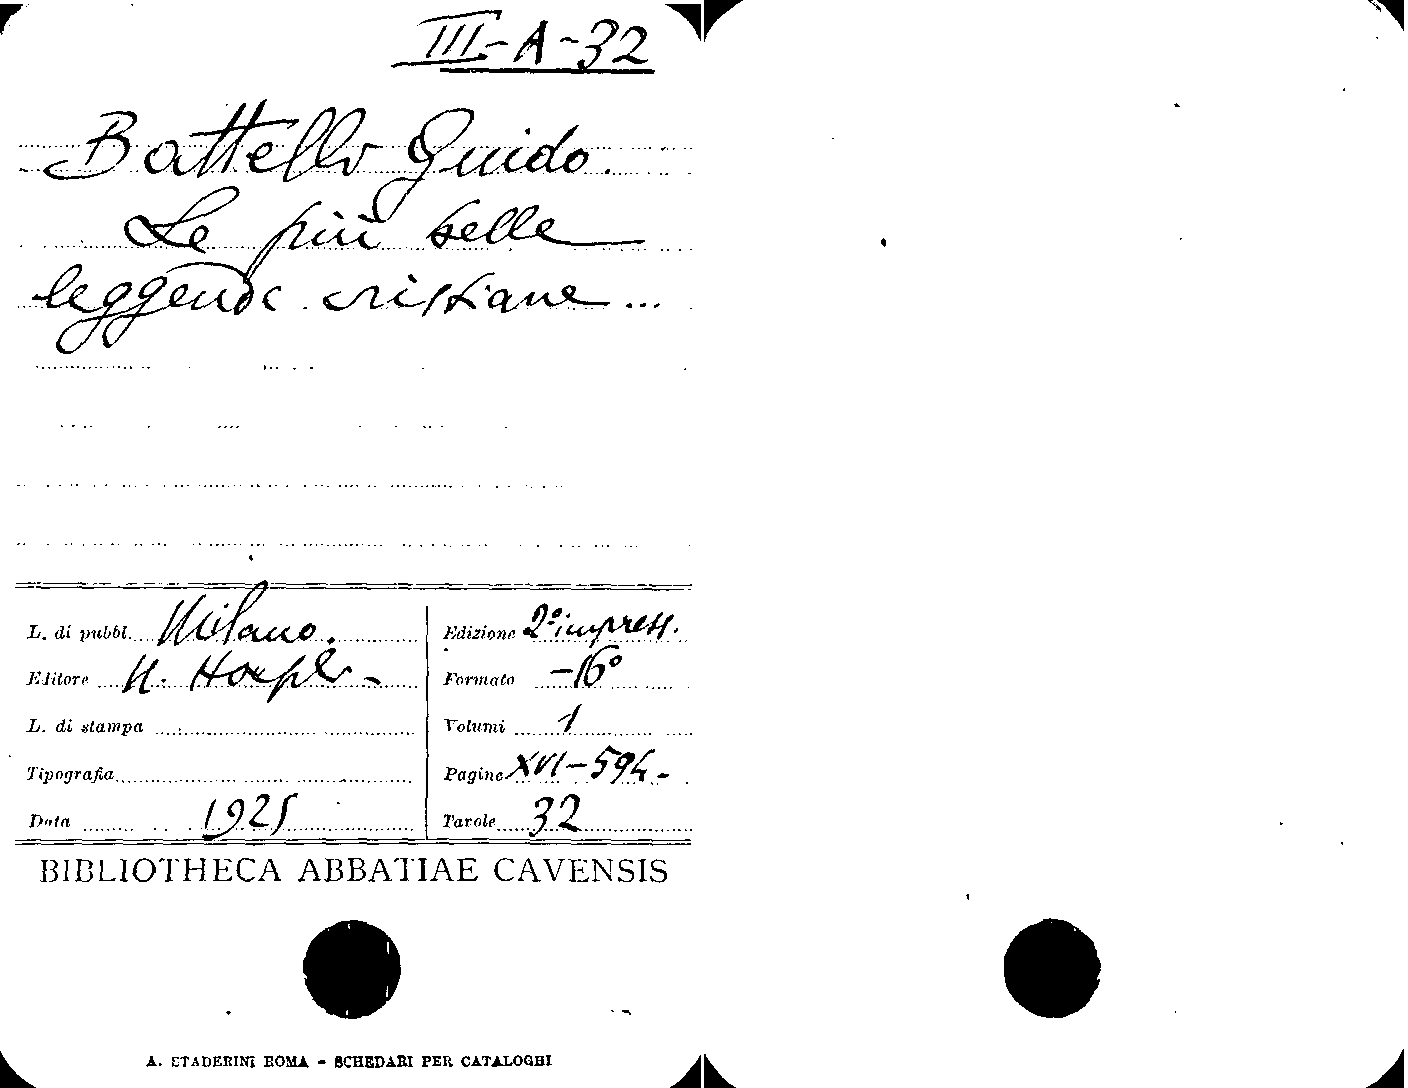 III-A-32
Battello Guido.
Le più belle
leggende cristiane...
L. di pubbl. Milano.
Editore U. Hoepli -
L. di stampa
Tipografia
Data 1925
Edizione 2ª impress.
Formato -16º
Volumi 1
Pagine XVI-594-
Tavole 32
BIBLIOTHECA ABBATIAE CAVENSIS
A. STADERINI ROMA - SCHEDARI PER CATALOGHI